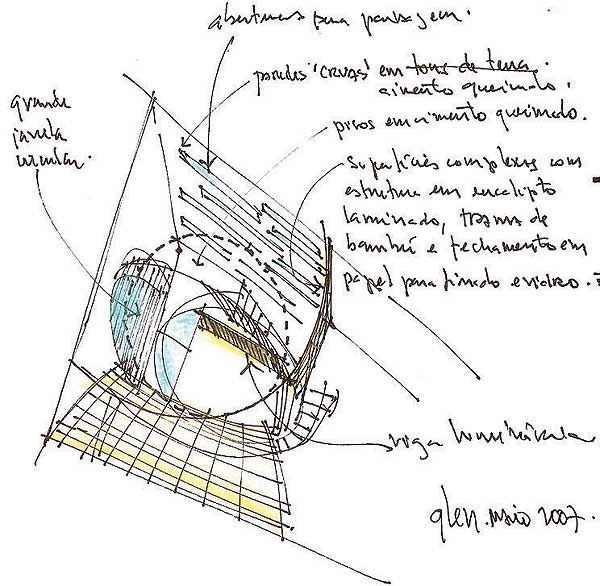 aberturas para paisagem.
paredes 'cruas' em tons de terra.
cimento queimado.
grande
janela
circular.
pisos em cimento queimado.
superfícies complexas com
estrutura em eucalipto
laminado, trama de
bambú e fechamento em
papel parafinado e vidro.
viga luminária
maio 2007.